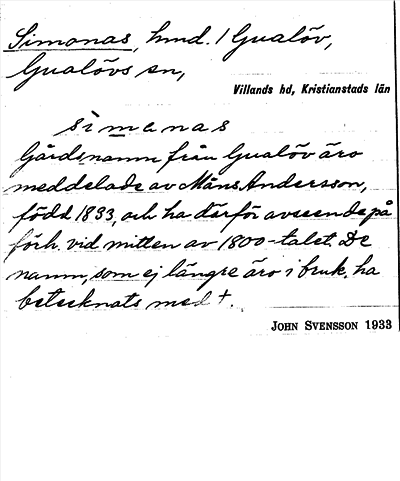 Simonas, hmd. 1 Gualöv,
Gualövs sn,
Villands hd, Kristianstads län
simanas
Gårdsnamn från Gualöv äro
meddelade av Måns Andersson,
född 1833, och ha därför avseende på
förh. vid mitten av 1800-talet. De
namn, som ej längre äro i bruk, ha
betecknats med +.
JOHN SVENSSON 1933